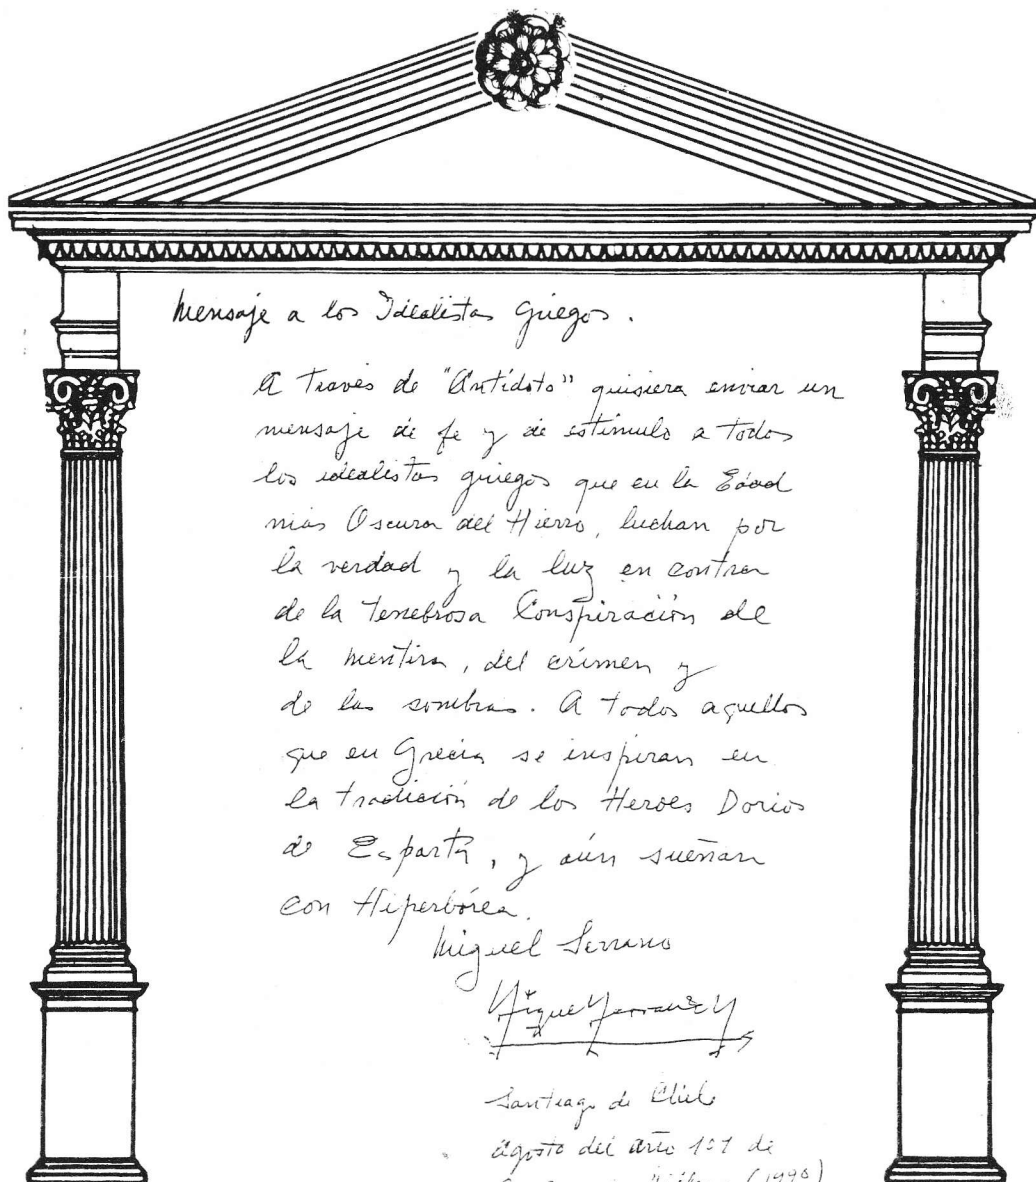 Mensaje a los Idealistas Griegos.
A través de "Antídoto" quisiera enviar un
mensaje de fe y de estímulo a todos
los idealistas griegos que en la Edad
más Oscura del Hierro, luchan por
la verdad y la luz en contra
de la Tenebrosa Conspiración de
la mentira, del crimen y
de las sombras. A todos aquellos
que en Grecia se inspiran en
la tradición de los Heroes Dorios
de Esparta, y aún sueñan
con Hiperbórea.
Miguel Serrano
Santiago de Chile
agosto del año 101 de
(1990)